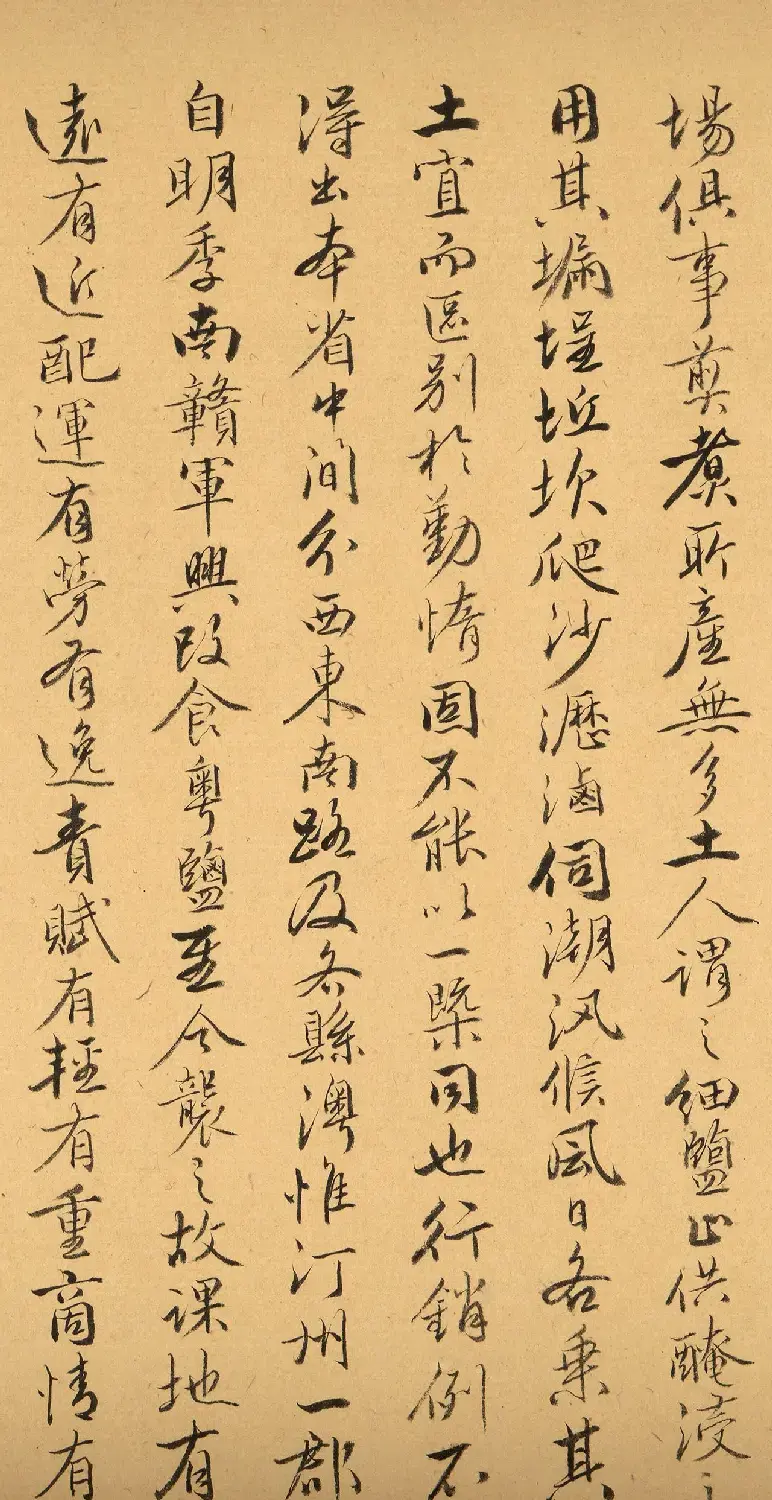 場俱事煎煮所產無多土人謂之細鹽止供醃漬之
用其塥埕坵坎爬沙瀝滷伺潮汛候風日各乘其
土宜而區別於勤惰固不能以一槩同也行銷例不
得出本省中間分西東南路及各縣澳惟汀州一郡
自明季南贛軍興改食粵鹽至今襲之故課地有
遠有近配運有勞有逸責賦有輕有重商情有